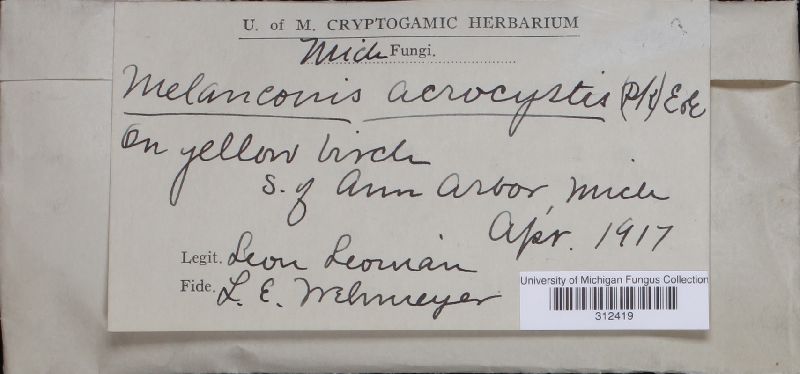 U. of M. CRYPTOGAMIC HERBARIUM
Mich Fungi.
Melanconis acrocystis (Pk) E&E
On yellow birch
S. of Ann Arbor, Mich
Apr. 1917
Legit. Leon Leonian
Fide. L. E. Wehmeyer
University of Michigan Fungus Collection
312419